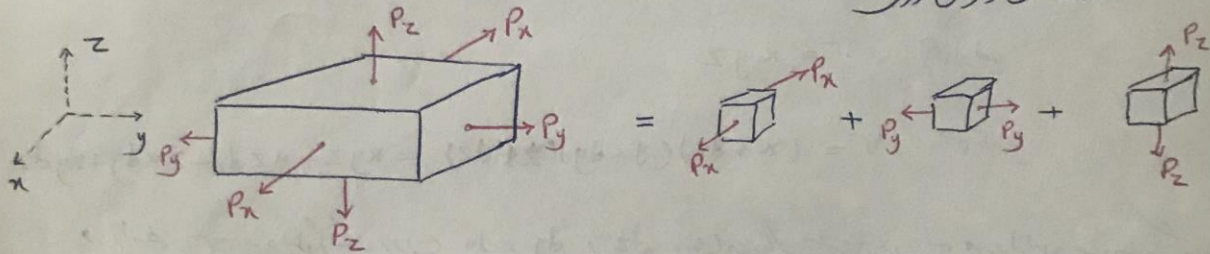 z
y
x
Pz
Px
Py
Py
Px
Pz
=
Px
Px
+
Py
Py
+
Pz
Pz